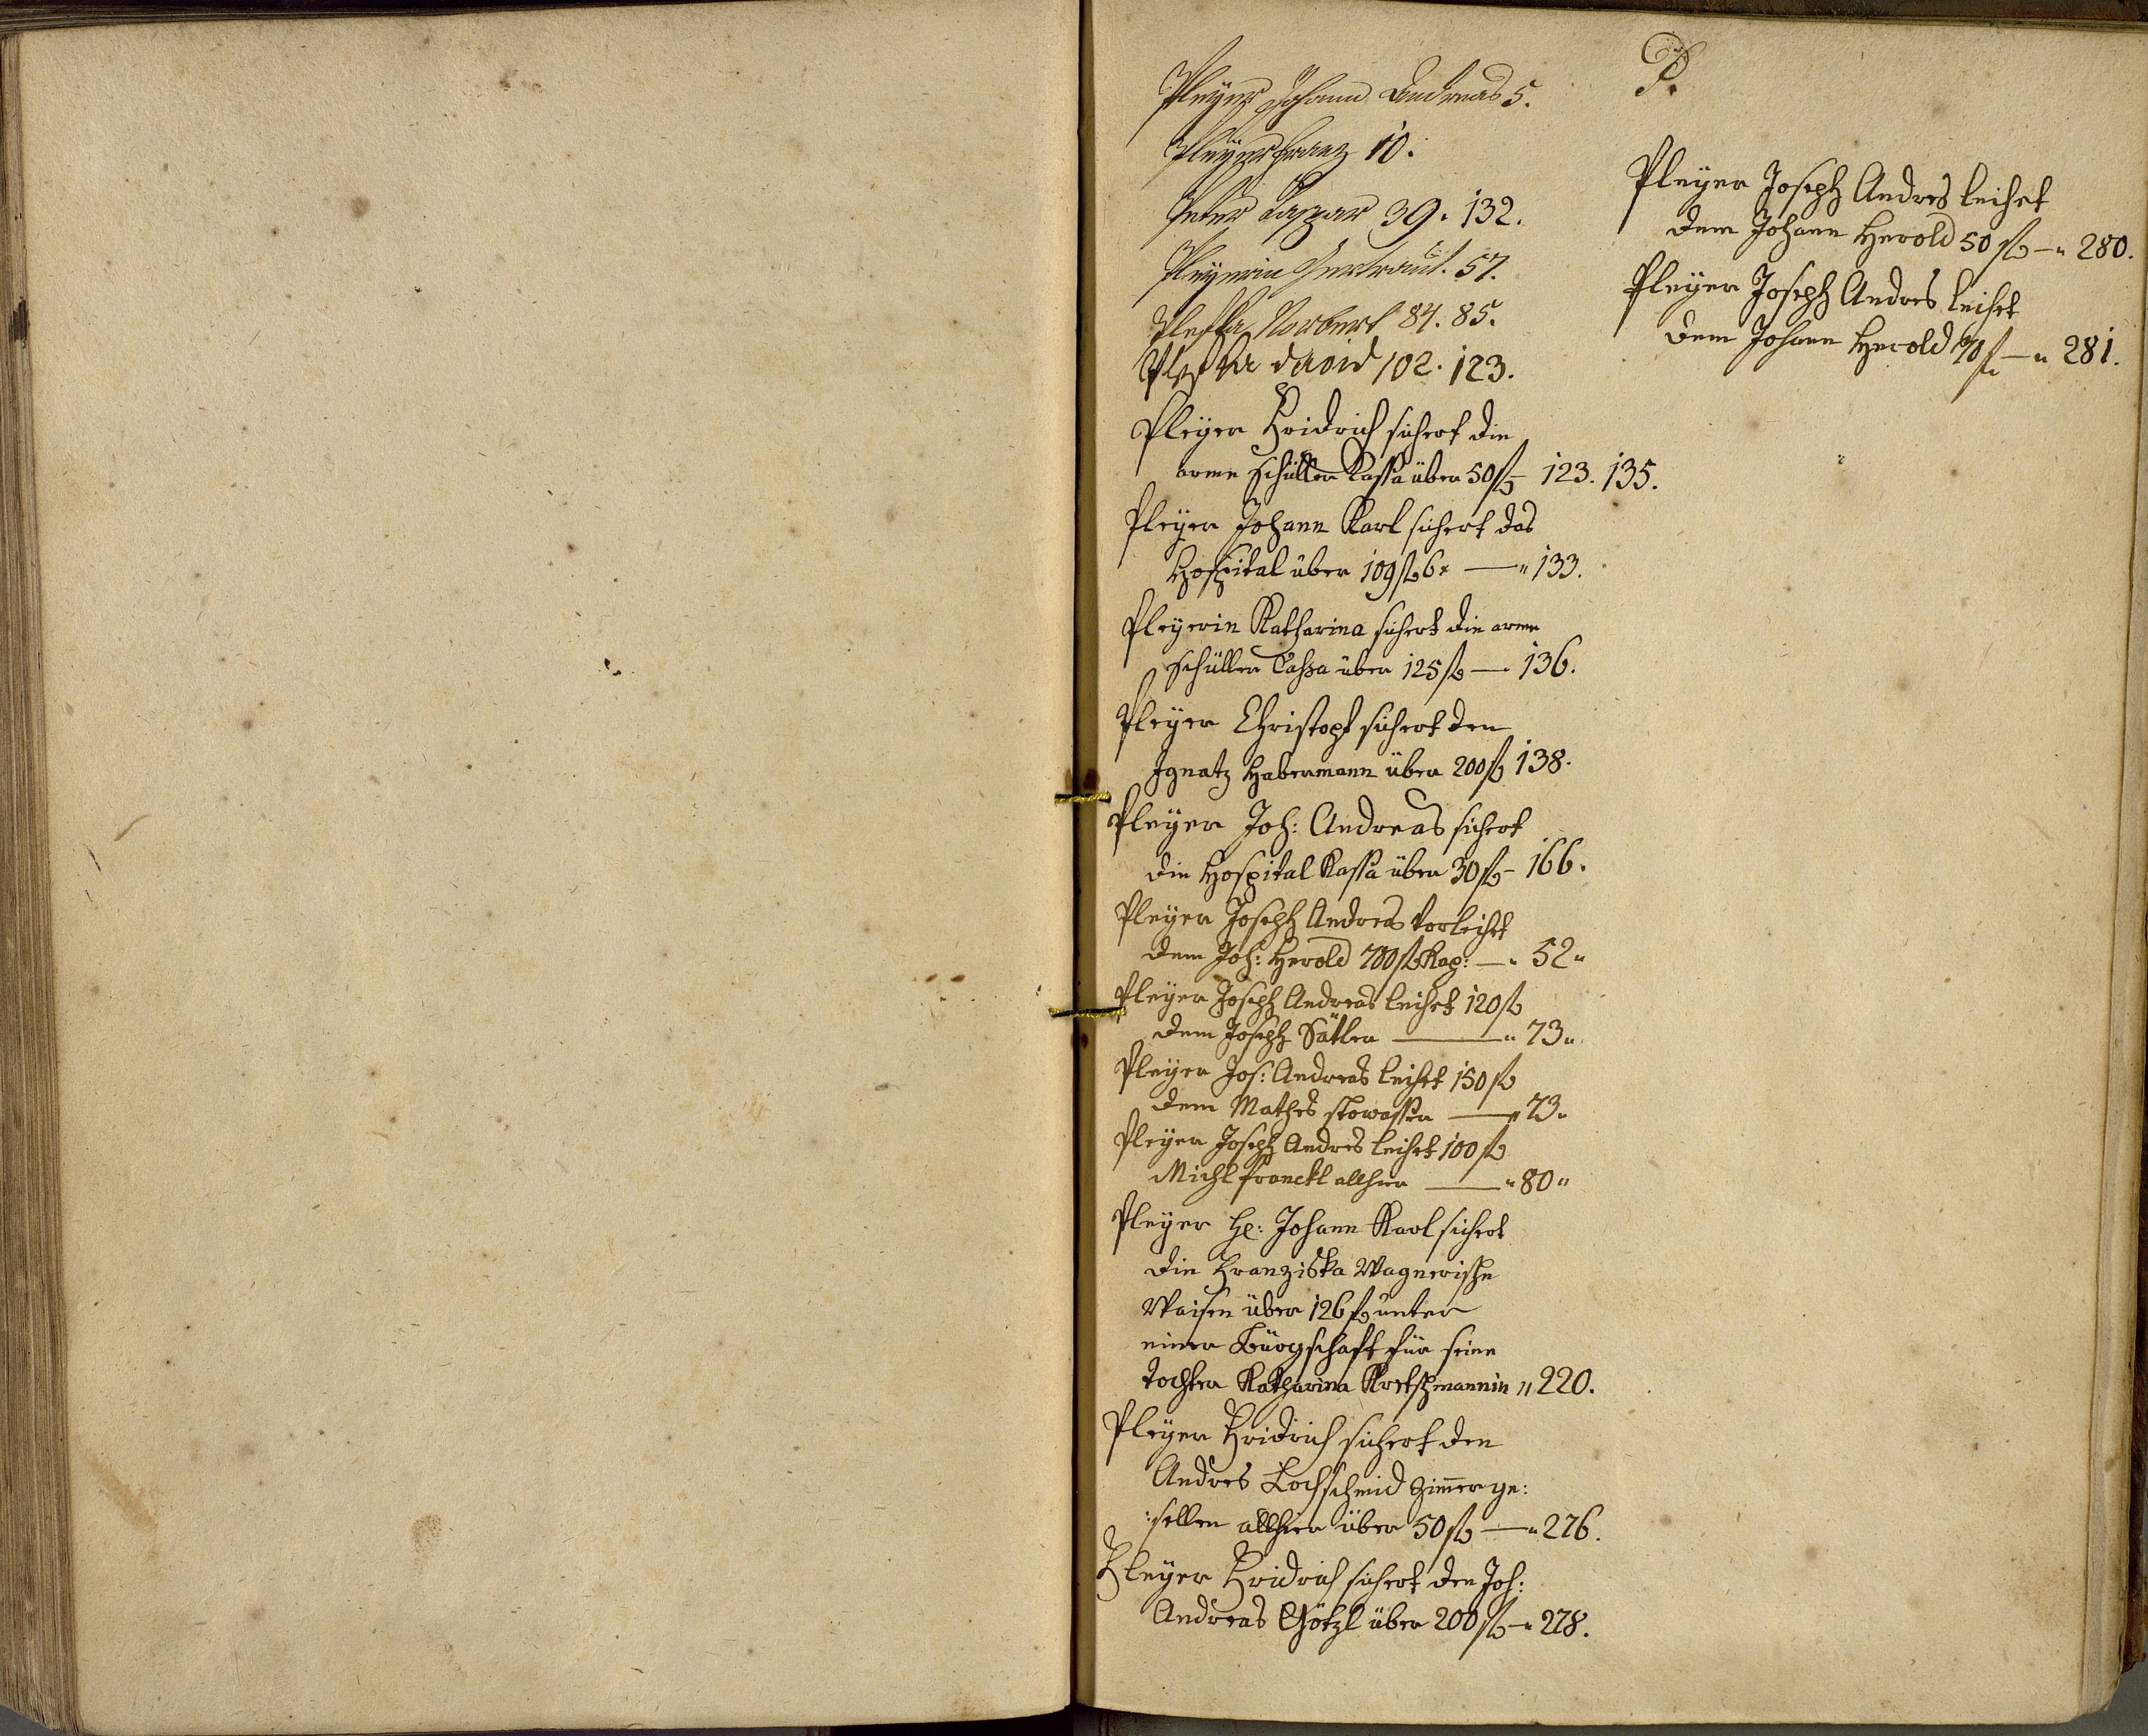 P.
Pleyer Johann Andreas 5.
Pleyer Franz 10.
Peter Caspar 39. 132.
Pleyerin Gertraut. 57.
Norbert 84. 85.
david 102. 123.
Pleyer Fridrich sichert die
arme Schüller Kassa über 50 fl 123. 135.
Pleyer Johann Karl sichert das
Hospital über 109 fl 6 x — " 133.
Pleyerin Katharina sichert die arme
Schüller Cassa über 125 fl — 136.
Pleyer Christoph sichert den
Ignatz Habermann über 200 fl 138.
Pleyer Joh: Andreas sichert
die Hospital Kassa über 30 fl - 166.
Pleyer Joseph Andreas Vorleihet
dem Joh: Herold 700 fl Kap: — " 52 "
Pleyer Joseph Andreas leihet 120 fl
dem Joseph Sätler — " 73 "
Pleyer Jos: Andreas leihet 150 fl
dem Mathes Stowasser — " 73 "
Pleyer Joseph Andres leihet 100 fl
Michl Franckl allhier — " 80 "
Pleyer H: Johann Karl sichert
die Franziska Wagnerische
Waisen über 126 fl unter
einer Bürgschaft für seine
Tochter Katharina Kretschmannin " 220.
Pleyer Fridrich sichert den
Andres Lochschmid Zimerge:
:sellen allhier über 50 fl — " 276.
Pleyer Fridrich sichert den Joh:
Andreas Götzl über 200 fl — " 278.
Pleyer Joseph Andres leihet
dem Johann Herold 50 fl — " 280.
Pleyer Joseph Andres leihet
dem Johann Herold 70 fl — " 281.